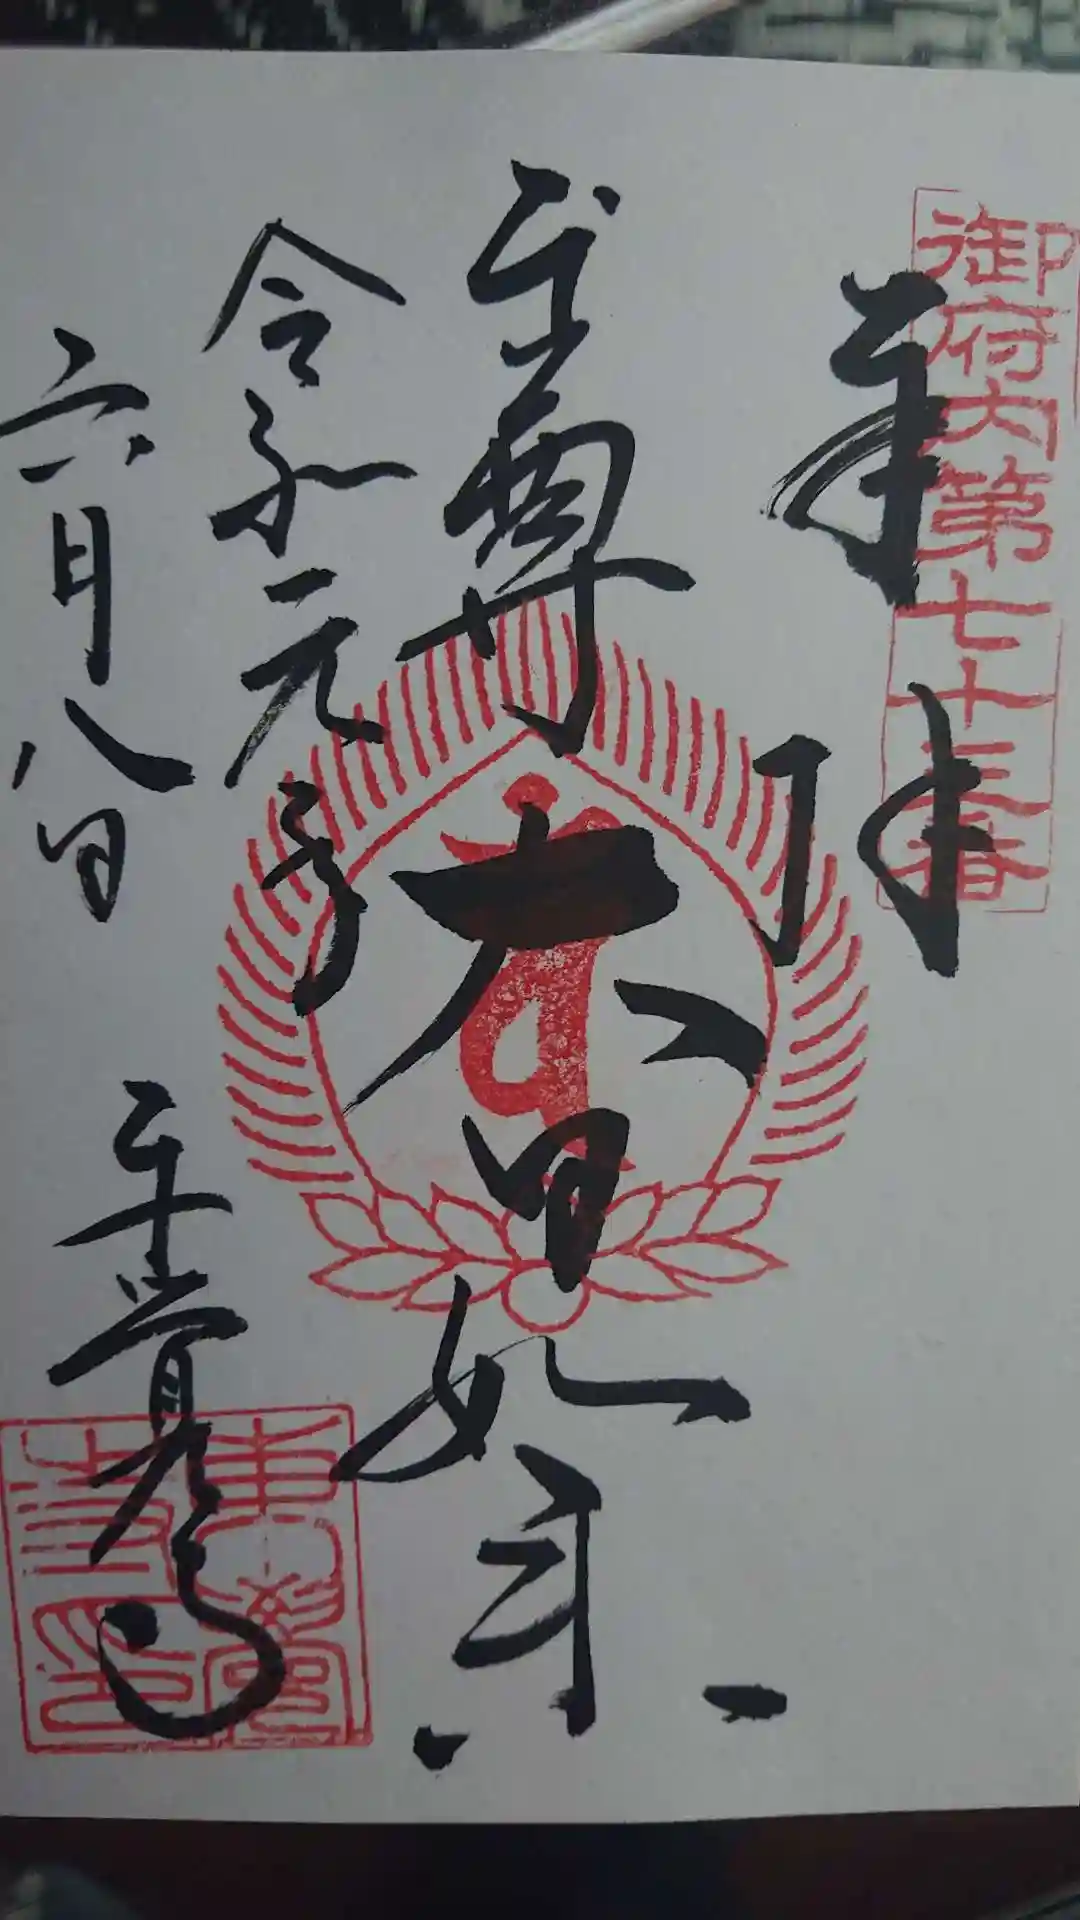 御府内第七十三番
奉拝
本尊大日如来
令和元年
六月八日
東覚寺
東覺寺印